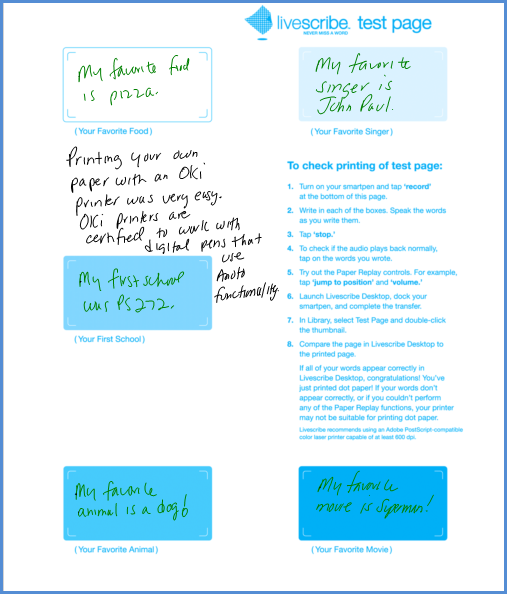 livescribe. test page
NEVER MISS A WORD
My favorite food
is pizza.
(Your Favorite Food)
My favorite
singer is
John Paul.
(Your Favorite Singer)
Printing your own
paper with an OKi
printer was very easy.
OKI printers are
certified to work with
digital pens that
use
Anoto
functionality.
My first school
was PS 272.
(Your First School)
To check printing of test page:
1. Turn on your smartpen and tap 'record'
at the bottom of this page.
2. Write in each of the boxes. Speak the words
as you write them.
3. Tap 'stop.'
4. To check if the audio plays back normally,
tap on the words you wrote.
5. Try out the Paper Replay controls. For example,
tap 'jump to position' and 'volume.'
6. Launch Livescribe Desktop, dock your
smartpen, and complete the transfer.
7. In Library, select Test Page and double-click
the thumbnail.
8. Compare the page in Livescribe Desktop to
the printed page.
If all of your words appear correctly in
Livescribe Desktop, congratulations! You've
just printed dot paper! If your words don't
appear correctly, or if you couldn't perform
any of the Paper Replay functions, your printer
may not be suitable for printing dot paper.
Livescribe recommends using an Adobe PostScript-compatible
color laser printer capable of at least 600 dpi.
My favorite
animal is a dog!
(Your Favorite Animal)
My favorite
movie is Superman!
(Your Favorite Movie)